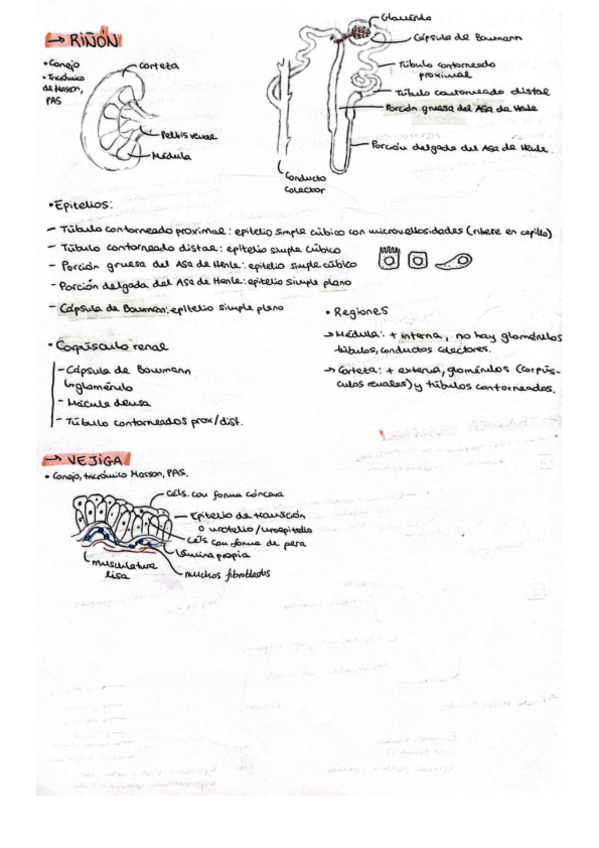 → RIÑÓN
• Conejo
• Tricrómico de Masson, PAS
Corteza
Pelvis renal
Médula
Glomérulo
Cápsula de Bowmann
Túbulo contorneado proximal
Túbulo contorneado distal
Porción gruesa del Asa de Henle
Porción delgada del Asa de Henle
Conducto colector
• Epitelios:
- Túbulo contorneado proximal: epitelio simple cúbico con microvellosidades (ribete en cepillo)
- Túbulo contorneado distal: epitelio simple cúbico
- Porción gruesa del Asa de Henle: epitelio simple cúbico
- Porción delgada del Asa de Henle: epitelio simple plano
- Cápsula de Bowman: epitelio simple plano
• Corpúsculo renal
- Cápsula de Bowmann
↳ glomérulo
- Mácula densa
- Túbulo contorneados prox/dist.
• Regiones
→ Médula: + interna, no hay glomérulos
túbulos, conductos colectores.
→ Corteza: + externa, glomérulos (corpús-
culos renales) y túbulos contorneados.
→ VEJIGA
• Conejo, tricrómico Masson, PAS.
céls. con forma cóncava
Epitelio de transición
o urotelio/uroepitelio
céls con forma de pera
lámina propia
muchos fibroblastos
musculatura
lisa